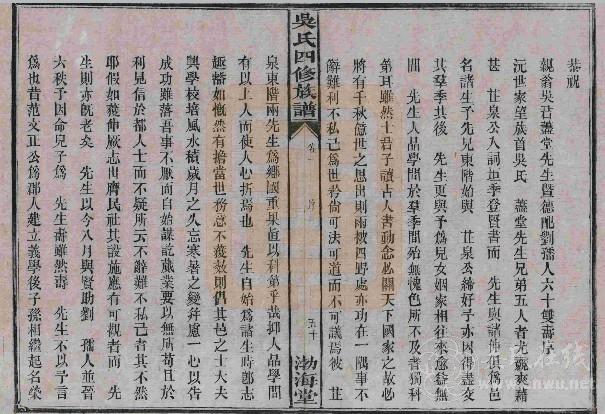 恭祝
親翁吳君藎堂先生暨德配劉孺人六十雙壽序
沅世家望族首吳氏 藎堂先生兄弟五人者尤競爽藉
甚 芷泉公人詞垣季登賢書而 先生與諸仲俱爲邑
名諸生予先兄東階始與 芷泉公締好予亦因得盡交
其羣季其後 先生更與予爲兒女姻家相往來愈益無
間 先生人品學問於羣季間殆無愧色所不及者獨科
第耳雖然士君子讀古人書動念必關天下國家之故必
將有千秋億世之思出則雨被四野處亦功在一隅事不
辭難利不私己爲世矜尙可法可道而不可議焉彼 芷
吳氏四修族譜
卷
序
五十
渤海堂
泉東階兩先生爲鄉國重果眞以科第乎哉抑人品學問
有以上人而使人心折焉也 先生自始爲諸生時鄰志
趣礉如慨然有擔當世務意不獲效則倡其邑之士大夫
興學校培風水積歲月之久忘寒暑之變幷慮一心以告
成功雖落吾事不厭而自始謀訖蕆業要以無厲苟且於
利見信於都人士而不疑所云不辭難不私己者其不然
耶假如獲伸厥志出臍民社其設施應有可觀者而 先
生則亦旣老矣 先生以今八月與賢助劉 孺人並晉
六秩予因命兒子爲 先生壽雖然壽 先生不以予言
爲也昔范文正公爲郡人建立義學後子孫相繼起名榮